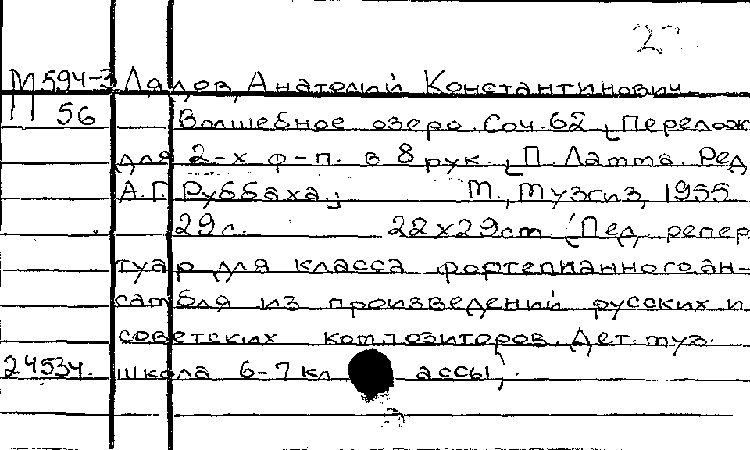 М 594-3 Лядов, Анатолий Константинович
56 Волшебное озеро. Соч. 62 [Перелож.
для 2-х ф-п. в 8 рук. П. Ламма. Ред.
А.Г. Руббаха.; М., Музгиз, 1955
29 л. 22х29см (Пед. репер-
туар для класса фортепианного ан-
самбля из произведений русских и
советских композиторов. Дет. муз.
24534. школа 6-7 кл ассы).